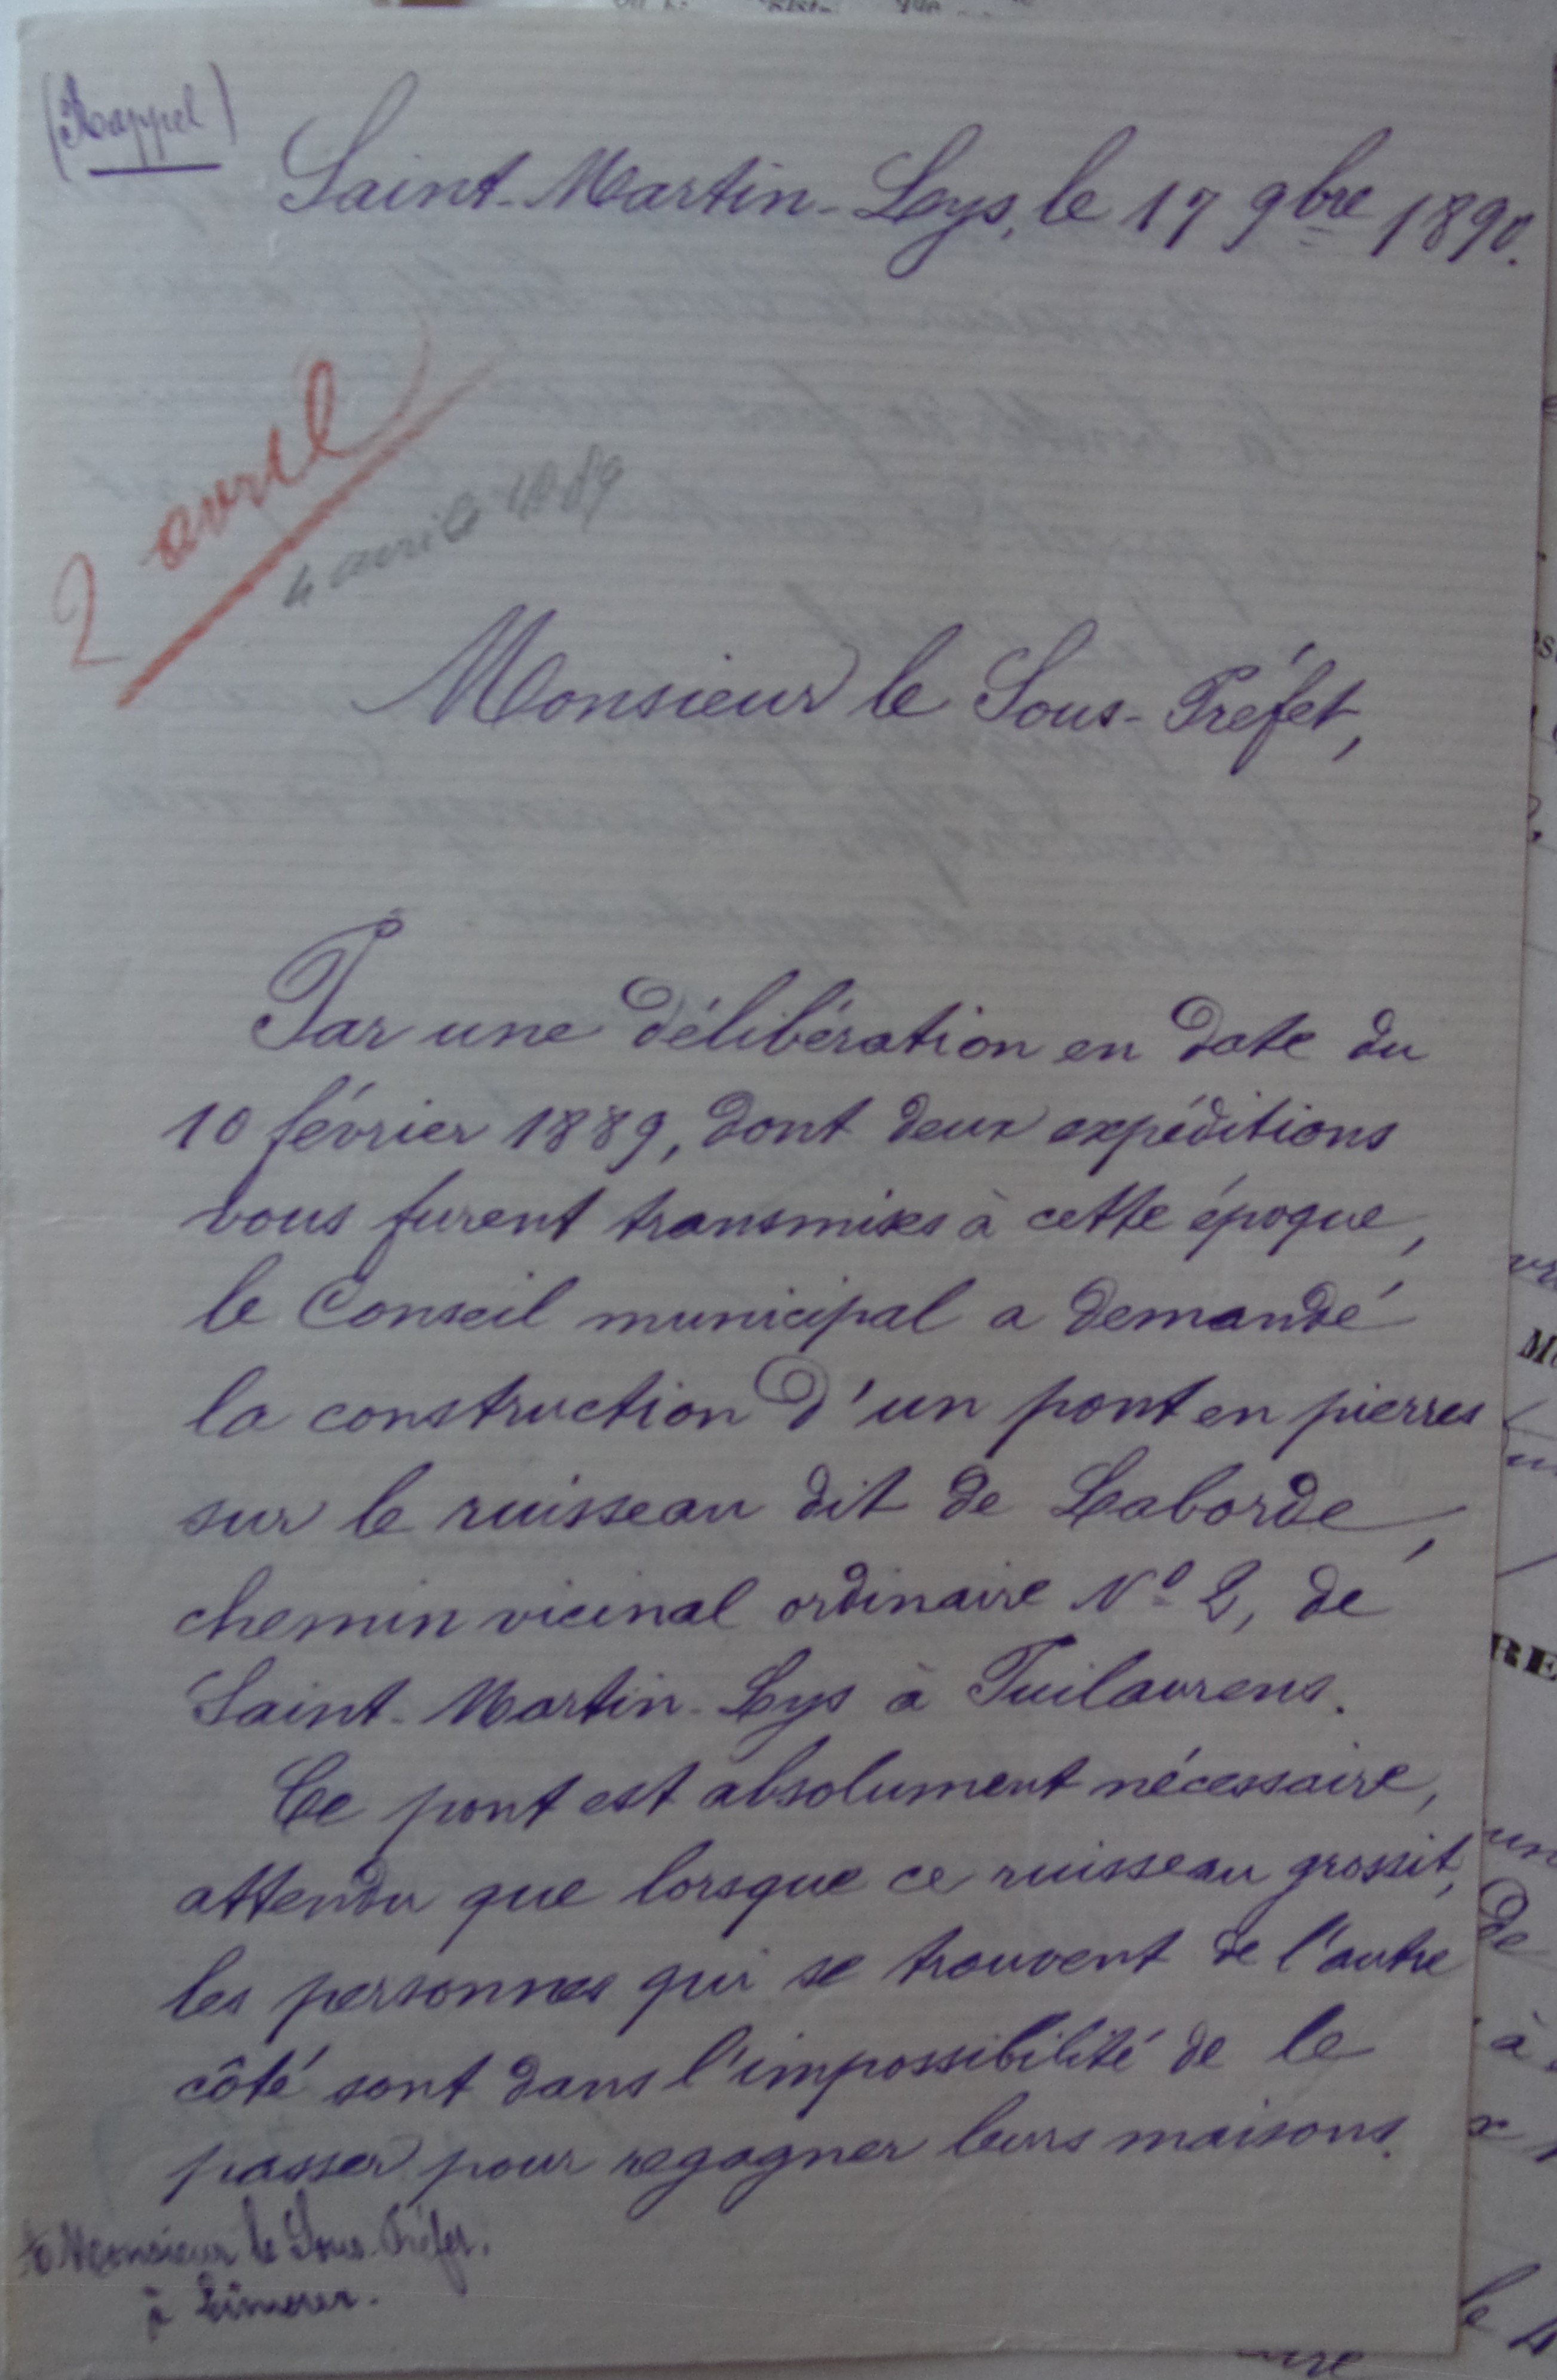 (Rappel)
Saint-Martin-Lys, le 17 9bre 1890.
2 avril
4 avril 1889
Monsieur le Sous-Préfet,
Par une délibération en date du
10 février 1889, dont deux expéditions
vous furent transmises à cette époque,
le Conseil municipal a demandé
la construction d'un pont en pierres
sur le ruisseau dit de Laborde,
chemin vicinal ordinaire Nº 2, de
Saint-Martin-Lys à Puilaurens.
Ce pont est absolument nécessaire,
attendu que lorsque ce ruisseau grossit,
les personnes qui se trouvent de l'autre
côté sont dans l'impossibilité de le
passer pour regagner leurs maisons.
Monsieur le Sous-Préfet.
à Limoux.